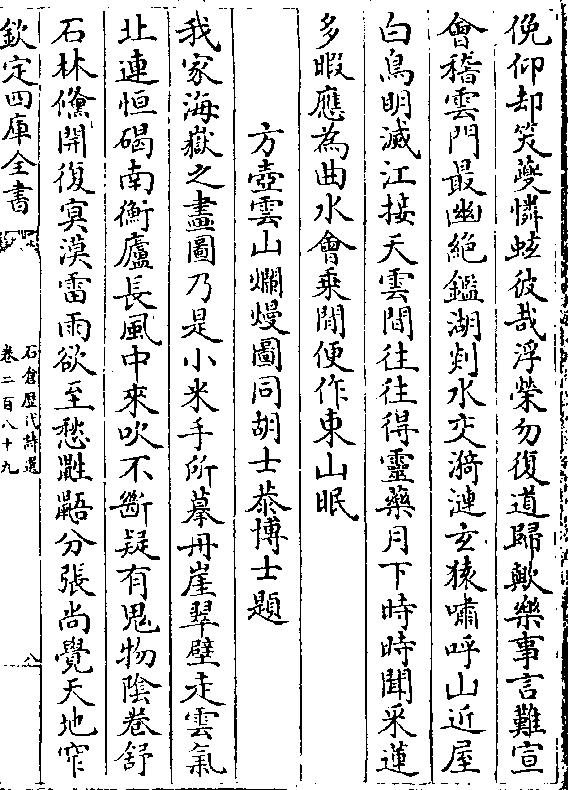 俛仰却笑夔憐蚿彼哉浮榮勿復道歸歟樂事言難宣
會稽雲門最幽絕鑑湖剡水交漪漣玄猿嘯呼山近屋
白鳥明滅江接天雲間往往得靈藥月下時時聞采蓮
多暇應為曲水會乗閒便作東山眠
方壺雲山爛熳圖同胡士恭博士題
我家海嶽之畫圖乃是小米手所摹丹崖翠壁走雲氣
北連恒碣南衡廬長風中來吹不斷疑有鬼物陰巻舒
石林儵開復㝠漠雷雨欲至愁鼪鼯分張尚覺天地窄
欽定四庫全書
石倉歷代詩選
卷二百八十九
八